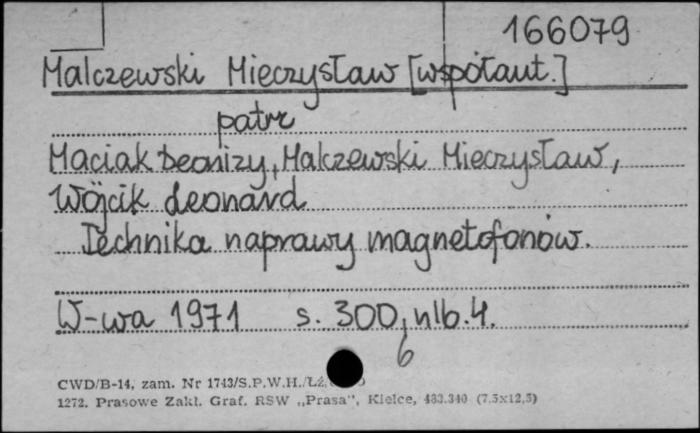 166079
Malczewski Mieczysław [współaut.]
patrz
Maciak Deonizy, Malczewski Mieczysław,
Wójcik Leonard
Technika naprawy magnetofonów.
W-wa 1971 s. 300, nlb. 4.
6
CWD/B-14, zam. Nr 1743/S.P.W.H./Łź
1272. Prasowe Zakł. Graf. RSW „Prasa”, Kielce, 483.340 (7,5x12,5)